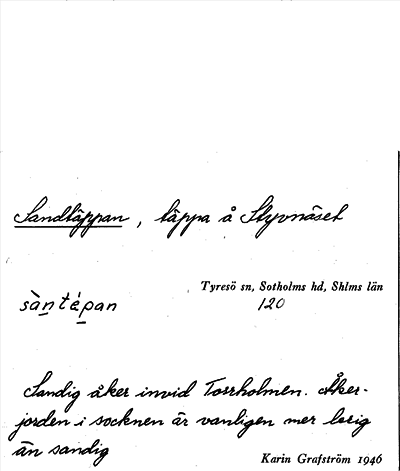 Sandtäppan, täppa å Styvnäset
Tyresö sn, Sotholms hd, Shlms län
120
sàntépan
Sandig åker invid Torrholmen. Åker-
jorden i socknen är vanligen mer lerig
än sandig
Karin Grafström 1946